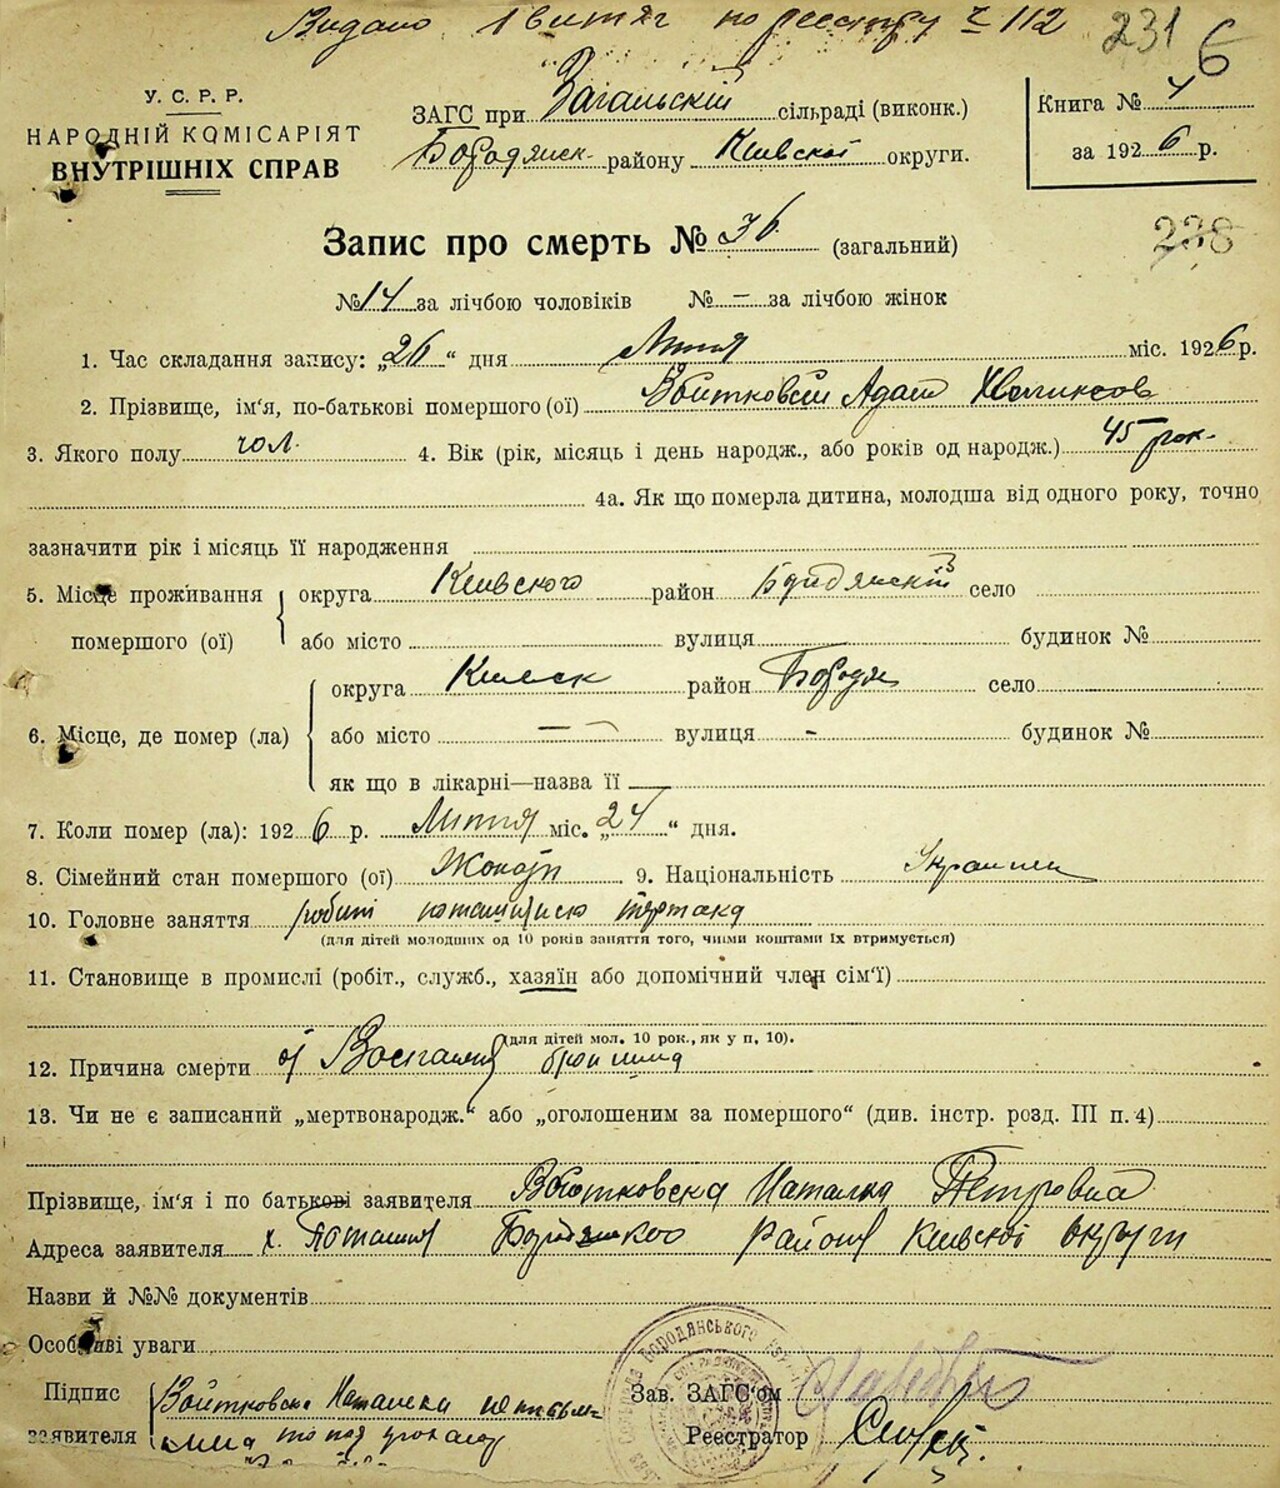 Видано 1 витяг по реєстру № 112
231
6
У. С. Р. Р.
НАРОДНІЙ КОМІСАРІЯТ
ВНУТРІШНІХ СПРАВ
ЗАГС при Загальскій сільраді (виконк.)
Бородянск. району Київскоі округи.
Книга № 4
за 1926 р.
Запис про смерть № 36 (загальний)
238
№ 14 за лічбою чоловіків № — за лічбою жінок
1. Час складання запису: „26“ дня Липня міс. 1926 р.
2. Прізвище, ім'я, по-батькові помершого (ої) Войтковскій Адам
3. Якого полу чол. 4. Вік (рік, місяць і день народж., або років од народж.) 45 рок.
4а. Як що померла дитина, молодша від одного року, точно
зазначити рік і місяць її народження
5. Місце проживання помершого (ої) округа Київского район село
або місто вулиця будинок №
6. Місце, де помер (ла) округа Киевск район Бородян село
або місто — вулиця - будинок №
як що в лікарні—назва її —
7. Коли помер (ла): 1926 р. Липня міс. „24“ дня.
8. Сімейний стан помершого (ої) Жонат 9. Національність Украинец
10. Головне заняття
(для дітей молодших од 10 років заняття того, чиїми коштами їх втримується)
11. Становище в промислі (робіт., служб., хазяїн або допомічний член сім'ї)
(для дітей мол. 10 рок., як у п. 10).
12. Причина смерти от Воспаления
13. Чи не є записаний „мертвонародж.“ або „оголошеним за помершого“ (див. інстр. розд. III п. 4)
Прізвище, ім'я і по батькові заявителя Войтковска Наталка Петровна
Адреса заявителя х. Поташня района Київскоі округи
Назви й №№ документів
Особливі уваги
Підпис заявителя Войтковска
Бородянського
Зав. ЗАГС'ом
Реєстратор